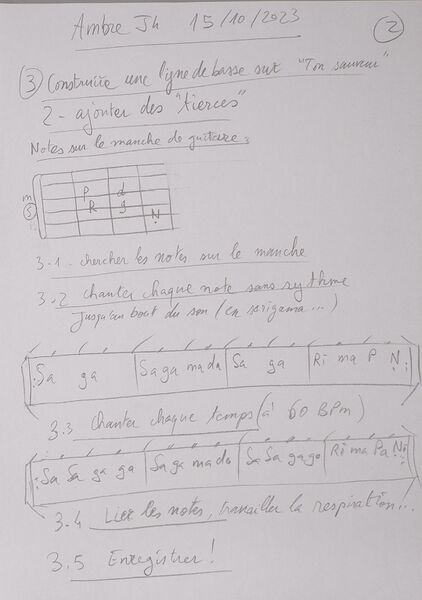 Ambre Jh 15/10/2023 2
3 Construire une ligne de basse sur "Ton sauveur"
2 - ajouter des "tierces"
Notes sur le manche de guitare :
P d
m
S R g
N
3.1. chercher les notes sur le manche
3.2 chanter chaque note sans rythme
jusqu'au bout du son (en sarigama ...)
Sa ga Sa ga ma da Sa ga Ri ma P N
3.3 chanter chaque temps (à 60 BPM)
Sa Sa ga ga Sa ga ma da Sa Sa ga ga Ri ma Pa Ni
3.4 Lier les notes, travailler la respiration !..
3.5 Enregistrer !